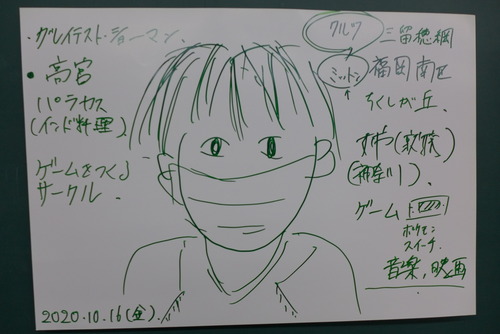 ・グレイテスト・ショーマン
・高宮
パラヤス
(インド料理)
ゲームをつくる
サークル
2020.10.16(金).
クルツ
ミットン
福岡南区
つくしが丘
(神奈川).
ゲーム
ポケモン
スイーチ
音楽,映画